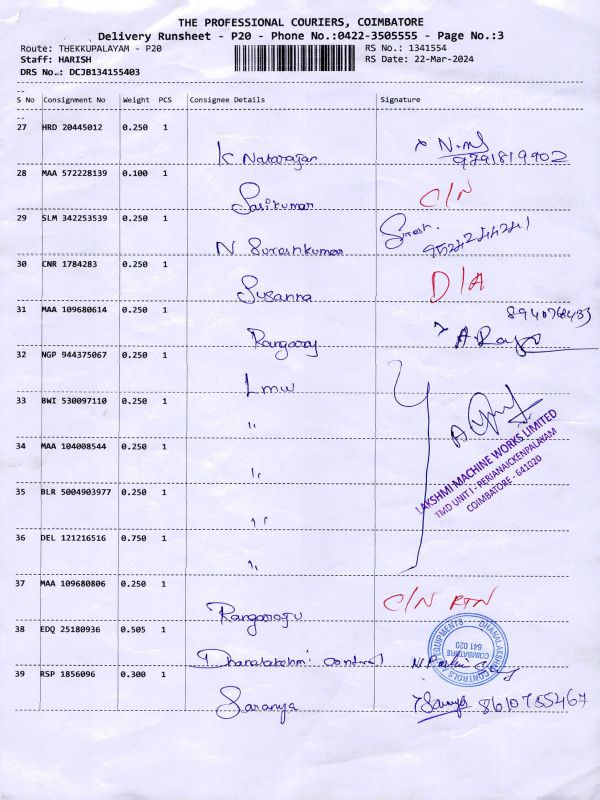 THE PROFESSIONAL COURIERS, COIMBATORE
Delivery Runsheet - P20 - Phone No.:0422-3505555 - Page No.:3
Route: THEKKUPALAYAM - P20 RS No.: 1341554
Staff: HARISH RS Date: 22-Mar-2024
DRS No..: DCJB134155403
S No Consignment No Weight PCS Consignee Details Signature
27 HRD 20445012 0.250 1
K Natarajan 9791819902
28 MAA 572228139 0.100 1
Sasikumar C/N
29 SLM 342253539 0.250 1
N Sureshkumar
30 CNR 1784283 0.250 1
Susanna D/A
31 MAA 109680614 0.250 1
8940768433
Rangaraj
32 NGP 944375067 0.250 1
Lmw
33 BWI 530097110 0.250 1
"
34 MAA 104008544 0.250 1
"
LAKSHMI MACHINE WORKS LIMITED
TMD UNIT I - PERIANAICKENPALAYAM
COIMBATORE - 641020
35 BLR 5004903977 0.250 1
"
36 DEL 121216516 0.750 1
"
37 MAA 109680806 0.250 1
Rangaraju C/N RTN
38 EDQ 25180936 0.505 1
Dhanalakshmi control
DHANALAKSHMI CONTROLS AND EQUIPMENTS
COIMBATORE
641 020
39 RSP 1856096 0.300 1
Saranya 8610755467